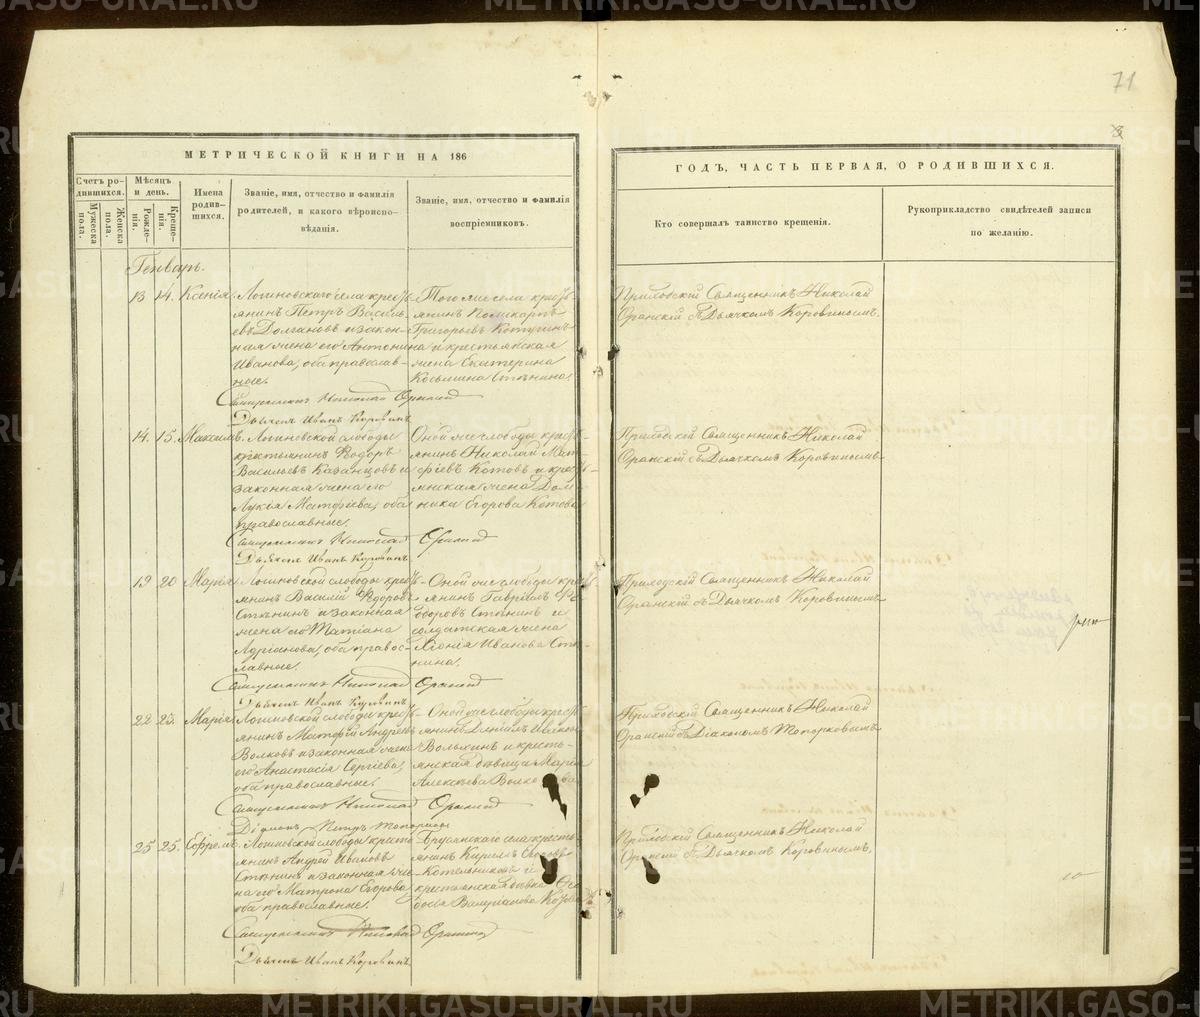 71
3
МЕТРИЧЕСКОЙ КНИГИ НА 186
Счетъ ро-
дившихся.
Мужеска
пола.
Женска
пола.
Мѣсяцъ
и день.
Рожде-
нія.
Креще-
нія.
Имена
родив-
шихся.
Званіе, имя, отчество и фамилія
родителей, и какого вѣроиспо-
вѣданія.
Званіе, имя, отчество и фамилія
воспріемниковъ.
ГОДЪ, ЧАСТЬ ПЕРВАЯ, О РОДИВШИХСЯ.
Кто совершалъ таинство крещенія.
Рукоприкладство свидѣтелей записи
по желанію.
Генварь.
13 14. Ксенія
Логиновскаго села кресть-
янинъ Петръ Василь-
евъ Долгановъ и закон-
ная жена его Антонина
Иванова, оба православ-
ные.
Того же села кресть-
янинъ Поликарпъ
Григорьевъ Котугинъ
и крестьянская
жена Екатерина
Косьмина Стѣнина.
Приходскій Священникъ Николай
Оранскій съ Дьячкомъ Коровинымъ.
Священникъ Николай Оранскій
Дьячекъ Иванъ Коровинъ
14. 15. Максимъ.
Логиновской слободы
крестьянинъ Ѳодоръ
Васильевъ Казанцовъ и
законная жена его
Лукія Матфіева, оба
православные.
Оной же слободы кресть-
янинъ Николай Мат-
фіевъ Котовъ и кресть-
янская жена Дом-
ника Егорова Котова
Приходскій Священникъ Николай
Оранскій съ Дьячкомъ Коровинымъ
Священникъ Николай Оранскій
Дьячекъ Иванъ Коровинъ
19 20 Марія
Логиновской слободы кресть-
янинъ Василій Ѳодоровъ
Стѣнинъ и законная
жена его Татіана
Адріанова, оба правос-
лавные.
Оной же слободы кресть-
янинъ Гавріилъ Ѳе-
доровъ Стѣнинъ и
солдатская жена
Хіонія Иванова Стѣ-
нина.
Приходскій Священникъ Николай
Оранскій съ Дьячкомъ Коровинымъ
Священникъ Николай Оранскій
Дьячекъ Иванъ Коровинъ
22 23. Марія
Логиновской слободы кресть-
янинъ Матфій Андреевъ
Волковъ и законная жена
его Анастасія Сергіева,
оба православные.
Оной же слободы кресть-
янинъ Даніилъ
и кресть-
янская дѣвица Марія
Алексѣева
Приходскій Священникъ Николай
Оранскій съ Діакономъ Топорковымъ
Священникъ Николай Оранскій
Діаконъ Петръ Топорковъ
25 25. Ефремъ.
Логиновской слободы кресть-
янинъ Андрей Ивановъ
Стѣнинъ и законная же-
на его Матрона Егорова,
оба православные.
Брусянскаго села кресть-
янинъ Кириллъ Егоровъ
Котельниковъ и
крестьянская
Приходскій Священникъ Николай
Оранскій съ Дьячкомъ Коровинымъ,
Священникъ Николай Оранскій
Дьячекъ Иванъ Коровинъ.
METRIKI.GASO-URAL.RU